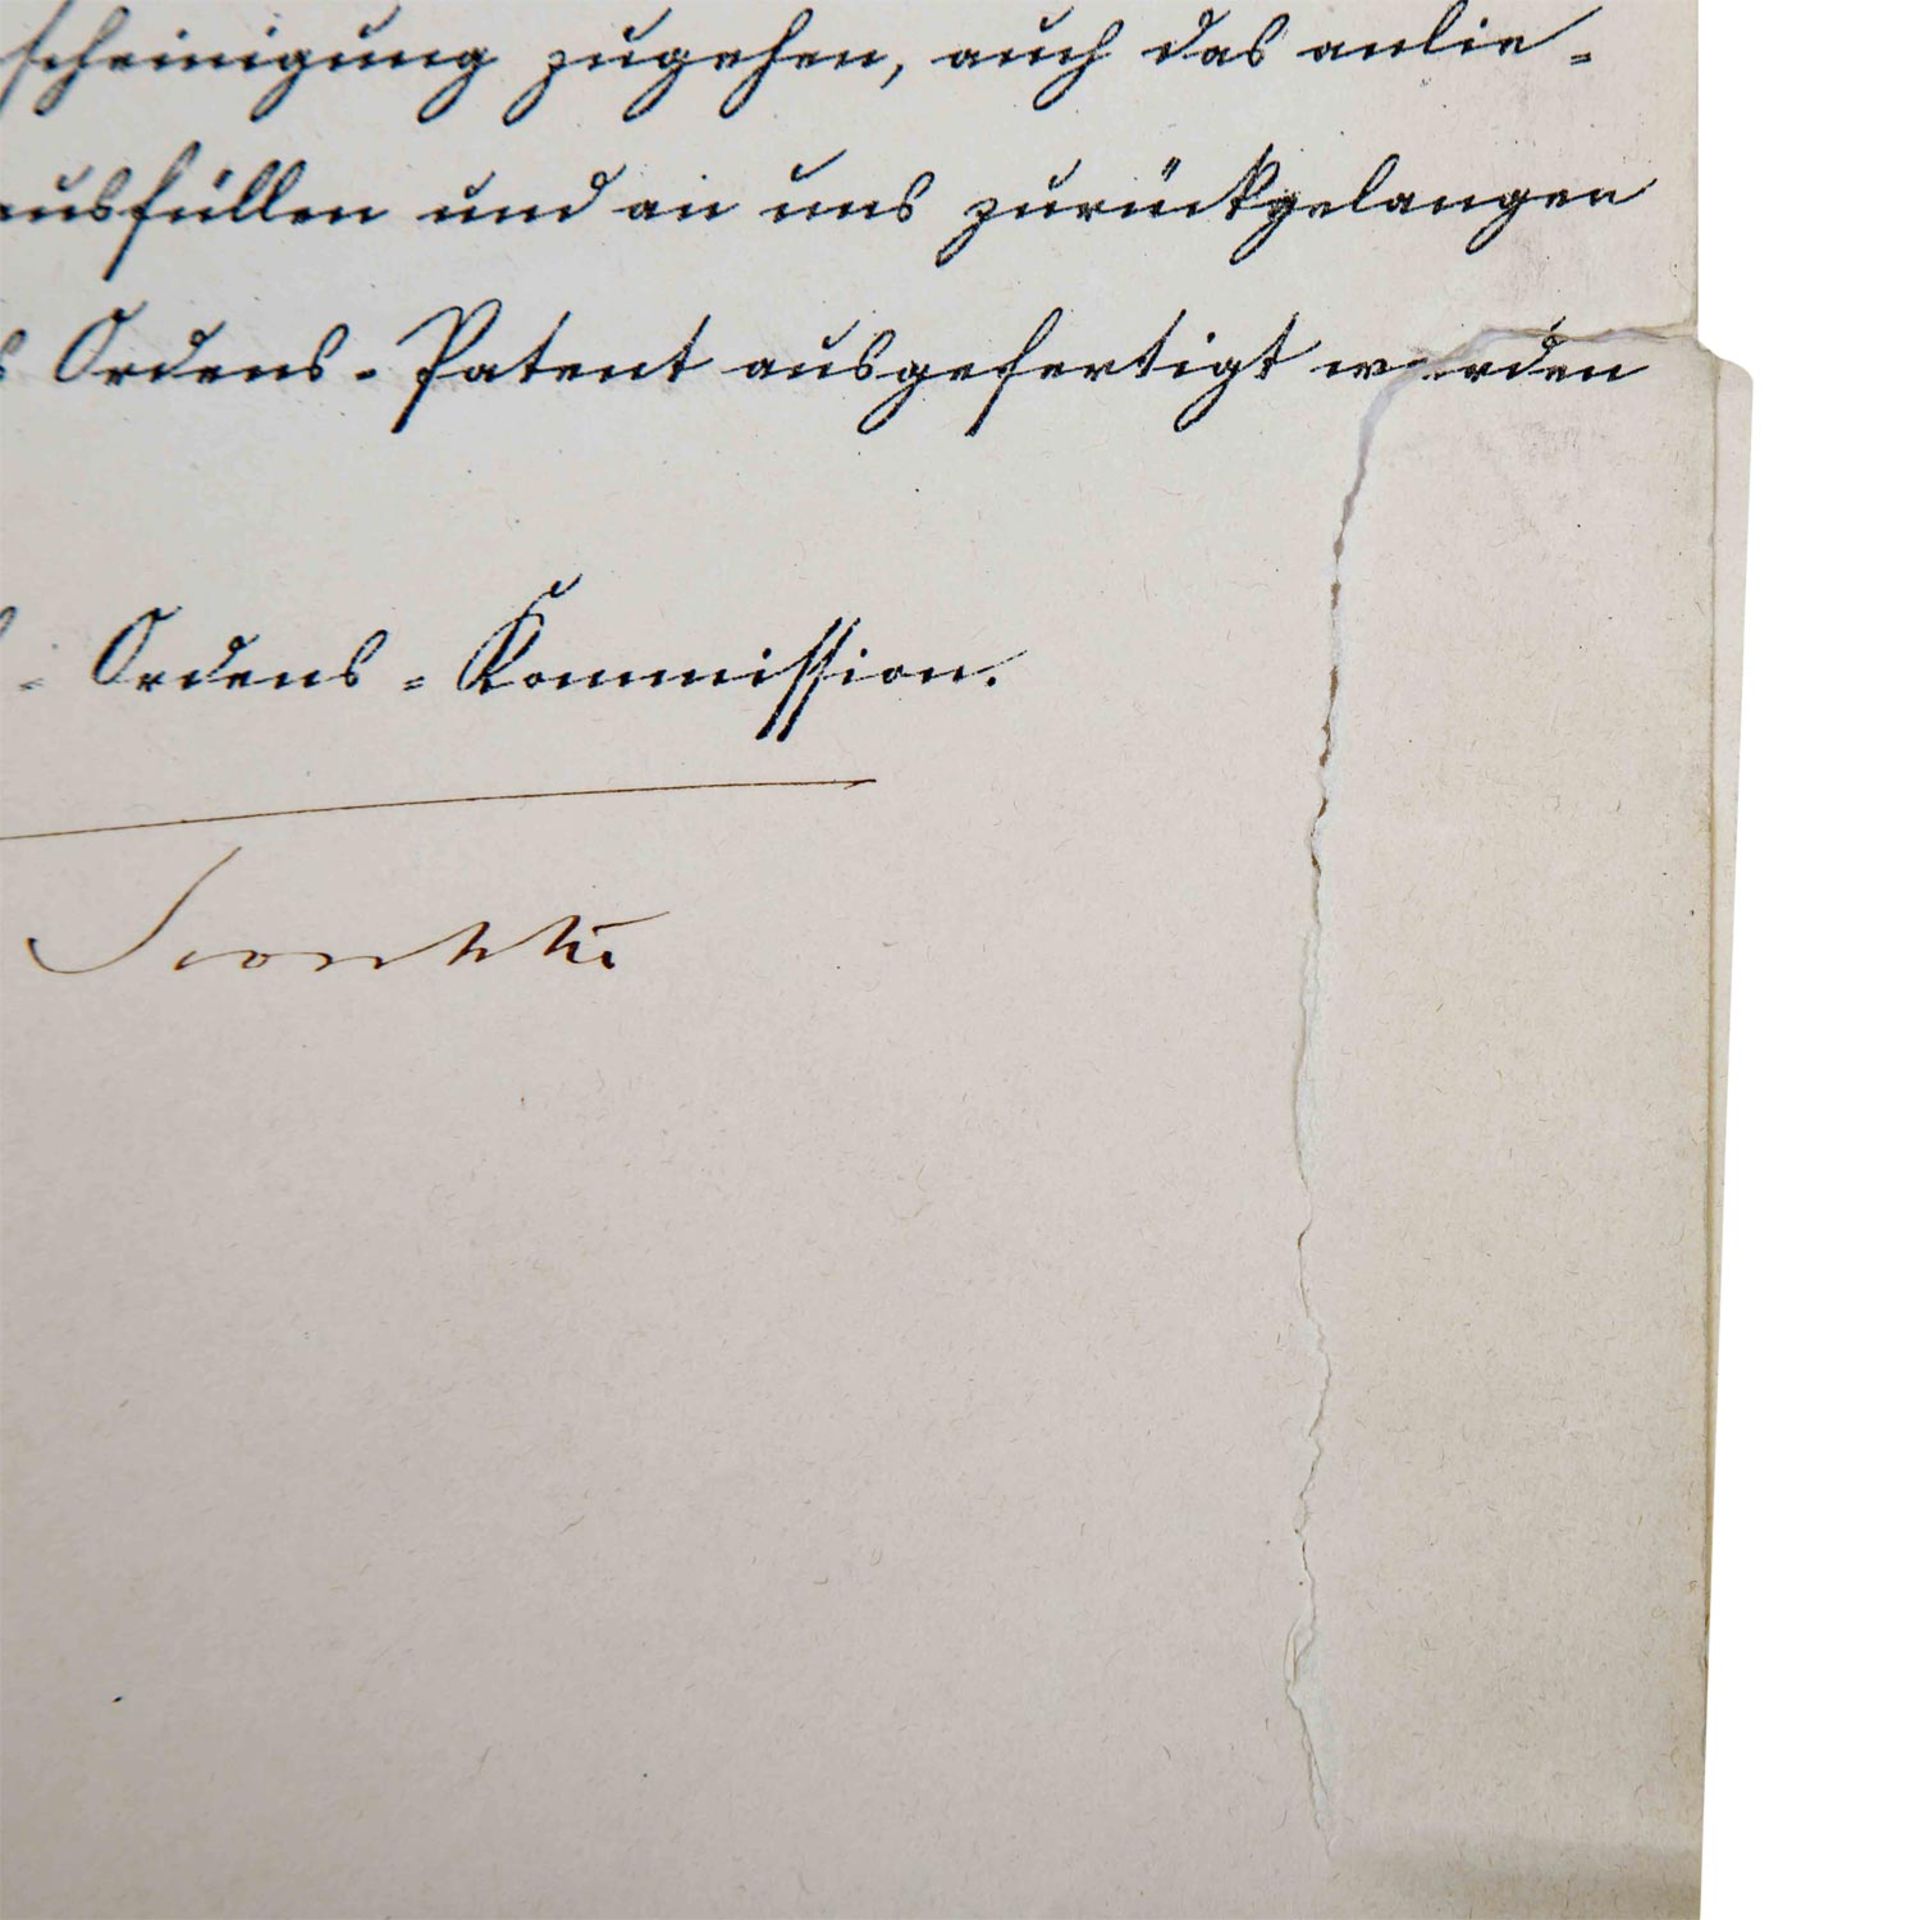 scheinigung zugehen, auch das anlie-
ausfüllen und an uns zurückgelangen
s Ordens-Patent ausgefertigt werden
- Ordens-Kommission.